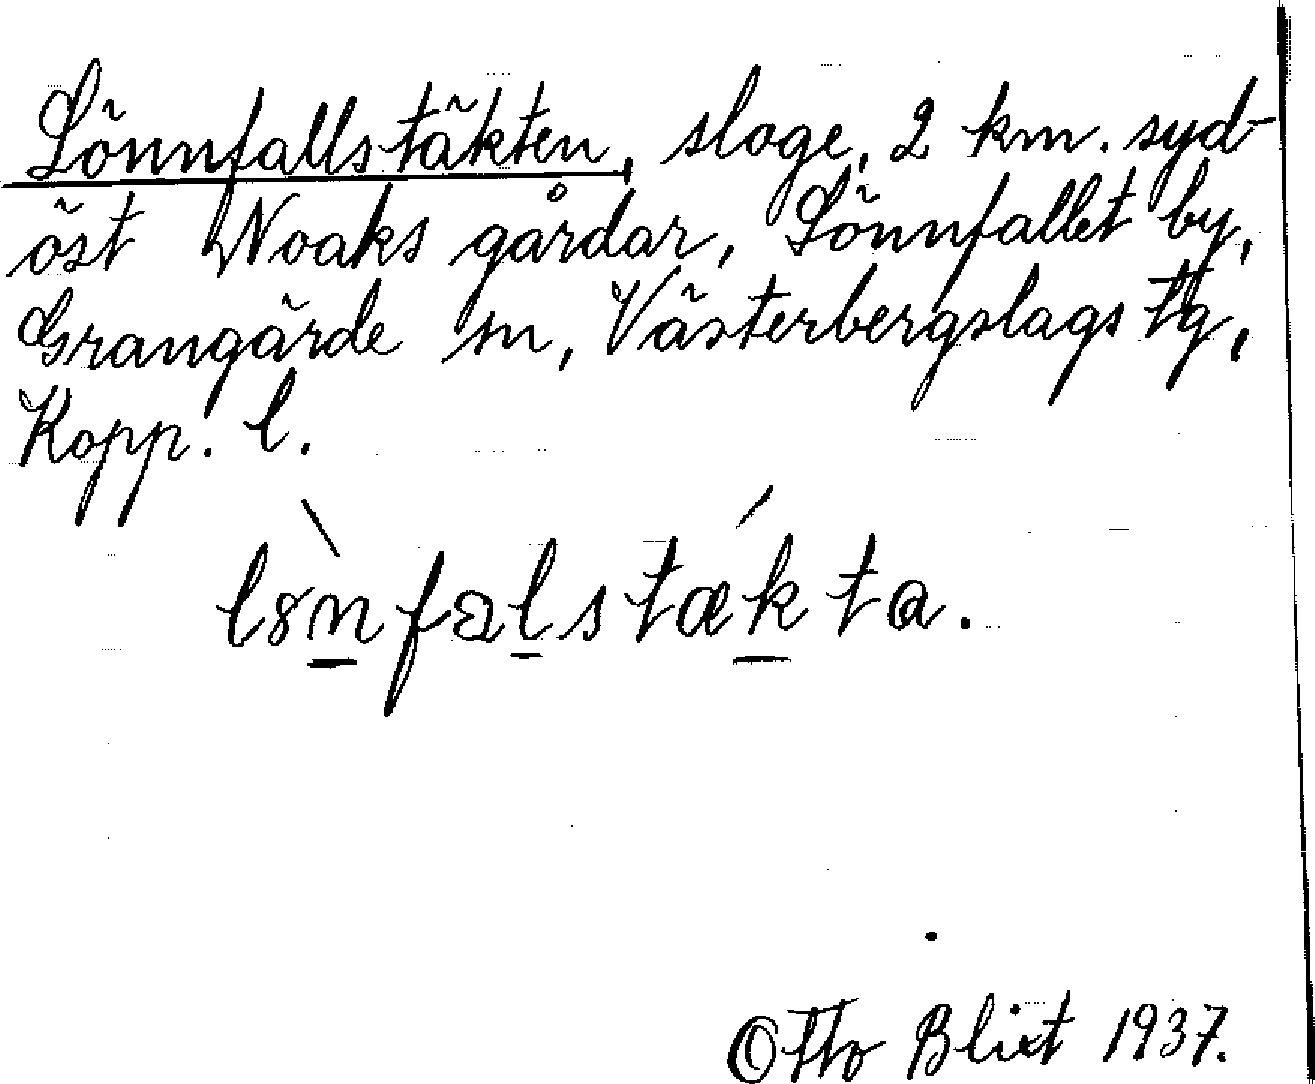 Lönnfallstäkten, sloge, 2 km. syd-
öst Noaks gårdar, Lönnfallet by,
Grangärde sn, Västerbergslags tg,
Kopp. l.
l8nfalstækta.
Otto Blixt 1937.